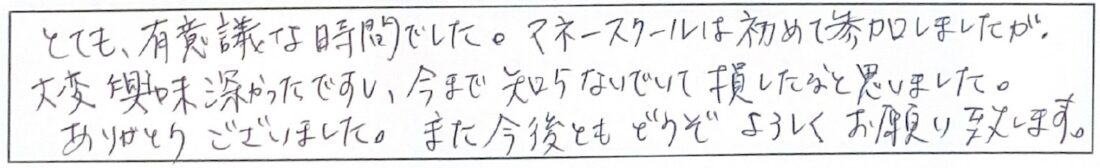 とても、有意議な時間でした。マネースクールは初めて参加しましたが、
大変興味深かったですし、今まで知らないでいて損したなと思いました。
ありがとうございました。また今後ともどうぞよろしくお願い致します。